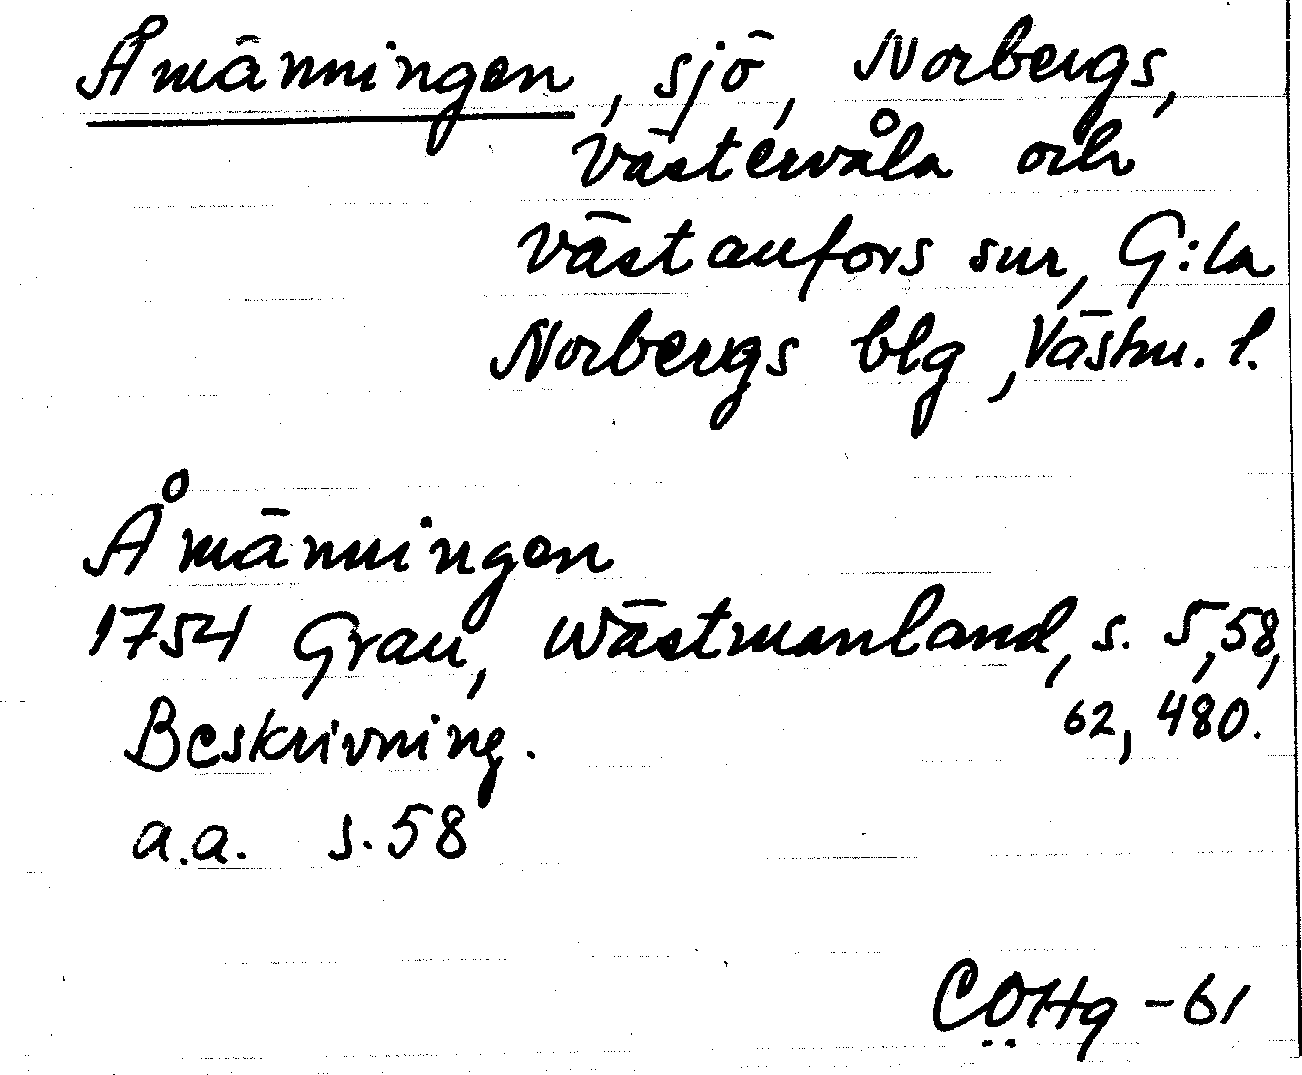 Åmänningen, sjö, Norbergs,
Västervåla och
Västanfors snr, G:la
Norbergs blg, Västm. l.
Åmänningen
1754 Grau, Wästmanland, s. 5, 58,
62, 480.
Beskrivning.
a.a. s. 58
COHg -61